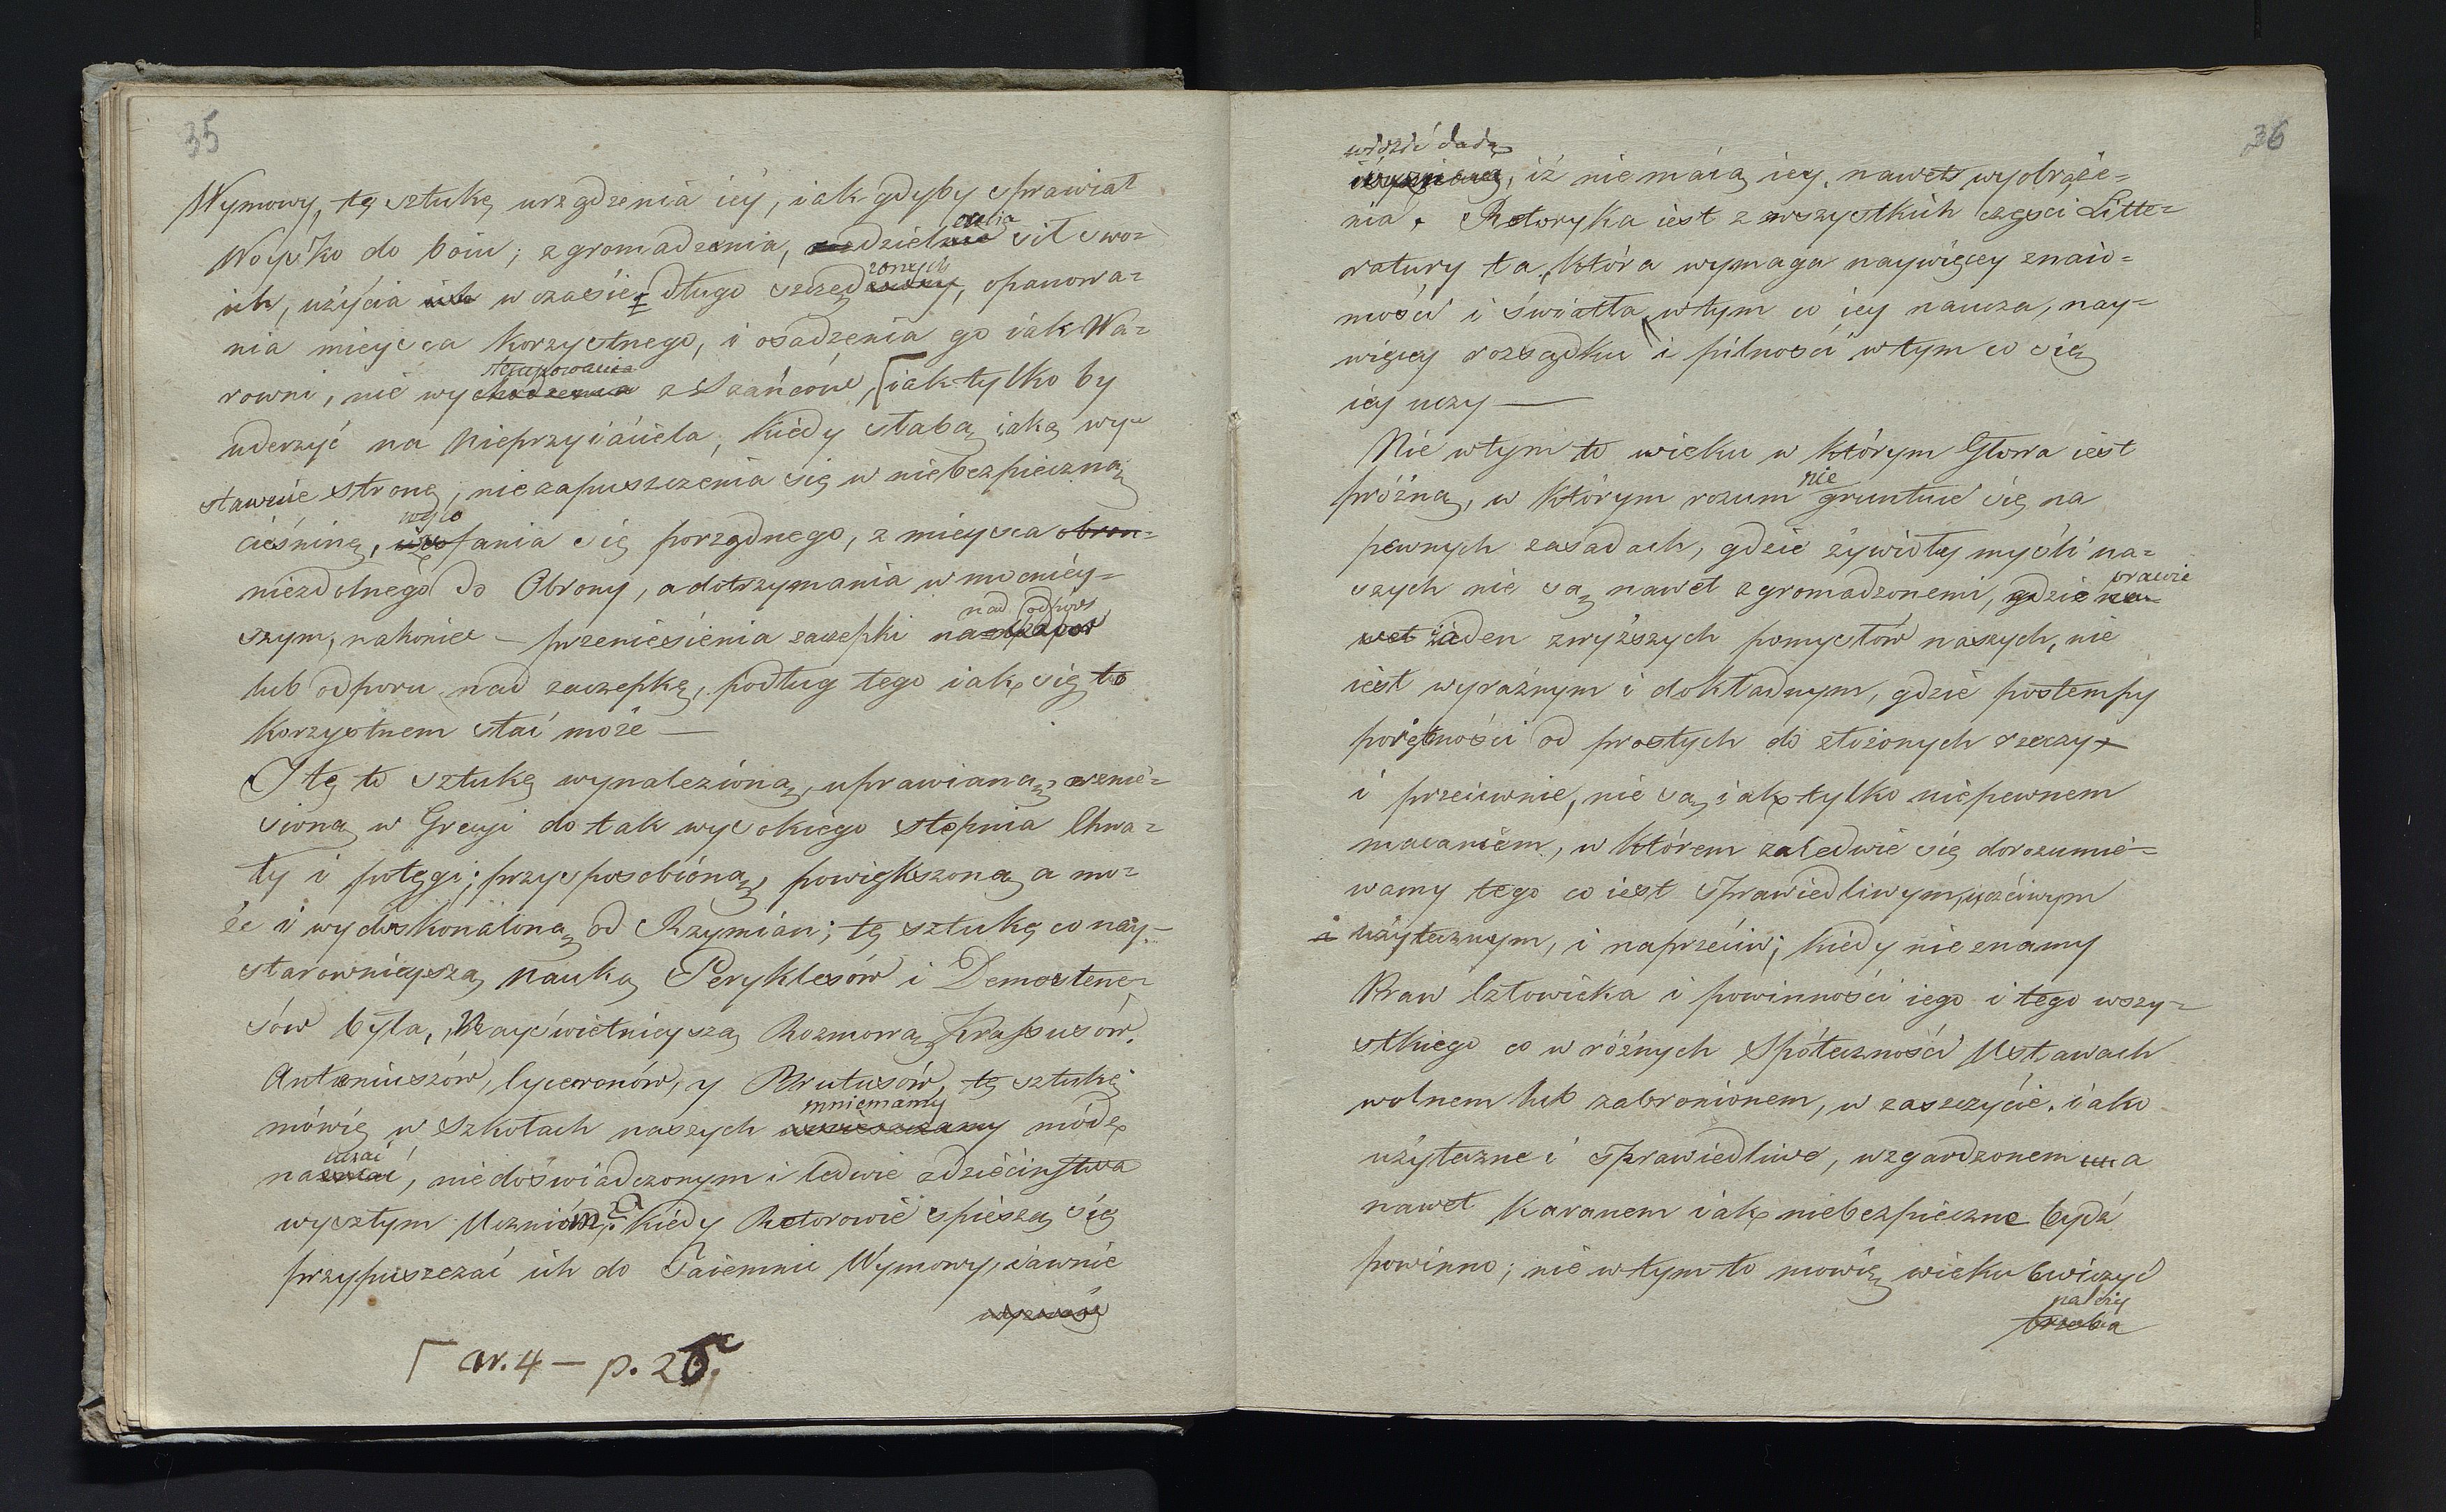 35
Wymowy, tę sztukę urządzenia iéy, iak gdyby sprawiał
Woysko do boiu; zgromadzenia, dzielenia sił swo=
ich, użycia ich w czasie długo szczędzonych, opanowa=
nia mieysca korzystnego, i osadzenia go iak Wa=
rowni, nie wystempowania z Szańców, iak tylko by
uderzyć na Nieprzyiaciela, kiedy słabą iaką wy=
stawuie stronę, nie zapuszczenia się w niebezpieczną
cieśninę, wycofania się porządnego, z mieysca obron=
niezdolnégo do Obrony, a dotrzymania w mocniéy=
szym, nakoniec — przeniesienia zaczepki nad odpór
lub odporu nad zaczepkę, podług tego iak się to
korzystnem stać może —
I tę to sztukę wynalezioną, uprawianą, wznie=
sioną w Grecyi do tak wysokiego stopnia Chwa=
ły i potęgi; przysposobioną, powiększoną a mo=
że i wydoskonaloną od Rzymian; tę sztukę co nay=
starownieyszą nauką Peryklesów i Demostene=
sów była, Nayświetnieyszą Rozmową Krassusów,
Antoniuszów, Cyceronów, y Brutusów, tę sztukę
mówię w Szkołach naszych mniemamy módz
nauczać, niedoświadczonym i ledwie z dzieciństwa
wyszłym Uczniom? a kiedy Retorowie spieszą się
przypuszczać ich do Taiemnic Wymowy, iawnie
wyznaią
av. 4 — p. 26.
36
widzić dadą
wyznaią, iż nie maią iey, nawet wyobraże=
nia. Retoryka iest z wszystkich części Litte=
ratury ta, która wymaga naywięcey znaio=
mości i światła w tym co iey naucza, nay=
więcey rozsądku i pilności w tym co się
iey uczy —
Nie w tym to wieku w którym Głowa iest
próżną, w którym rozum nie gruntuie się na
pewnych zasadach, gdzie żywioły myśli na=
szych nie są nawet zgromadzonemi, gdzie prawie na=
wet żaden z wyższych pomysłów naszych, nie
iest wyraźnym i dokładnym, gdzie postempy
poiętności od prostych do złożonych rzeczy
i przeciwnie, nie są iak tylko niepewnem
macaniém, w którem zaledwie się dorozumié=
wamy tego co iest sprawiedliwym, uczciwym
i użytecznym, i naprzeciw; kiedy nie znamy
Praw Człowieka i powinności iego i tego wszy=
stkiego co w różnych Społeczności Ustawach
wolnem lub zabronionem, w zaszczycie, iako
użyteczne i sprawiedliwe, wzgardzonem a
nawet karanem iak niebezpieczne bydź
powinno; nie w tym to mówię wieku ćwiczyć
należy
trzeba